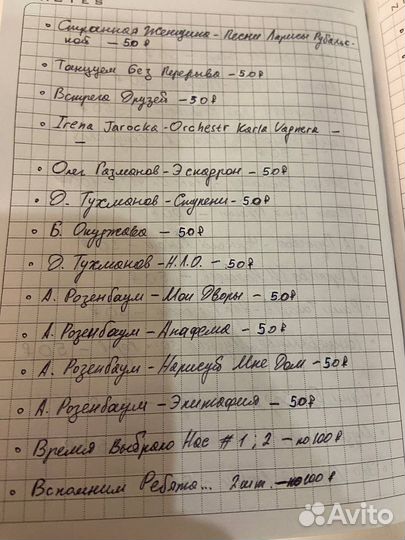 NOTES
• Странная Женщина - Песни Ларисы Рубаль-
ской - 50₽
• Танцуем Без Перерыва - 50₽
• Встреча Друзей - 50₽
• Irena Jarocka - Orchestr Karla Vagnera -
-
• Олег Газманов - Эскадрон - 50₽
• Д. Тухманов - Ступени - 50₽
• Б. Окуджава - 50₽
• Д. Тухманов - Н.Л.О. - 50₽
• А. Розенбаум - Мои Дворы - 50₽
• А. Розенбаум - Анафема - 50₽
• А. Розенбаум - Нарисуй Мне Дом - 50₽
• А. Розенбаум - Эпитафия - 50₽
• Время Выбрало Нас #1; 2 - по 100₽
• Вспомним Ребята... 2шт. - по 100₽
Avito